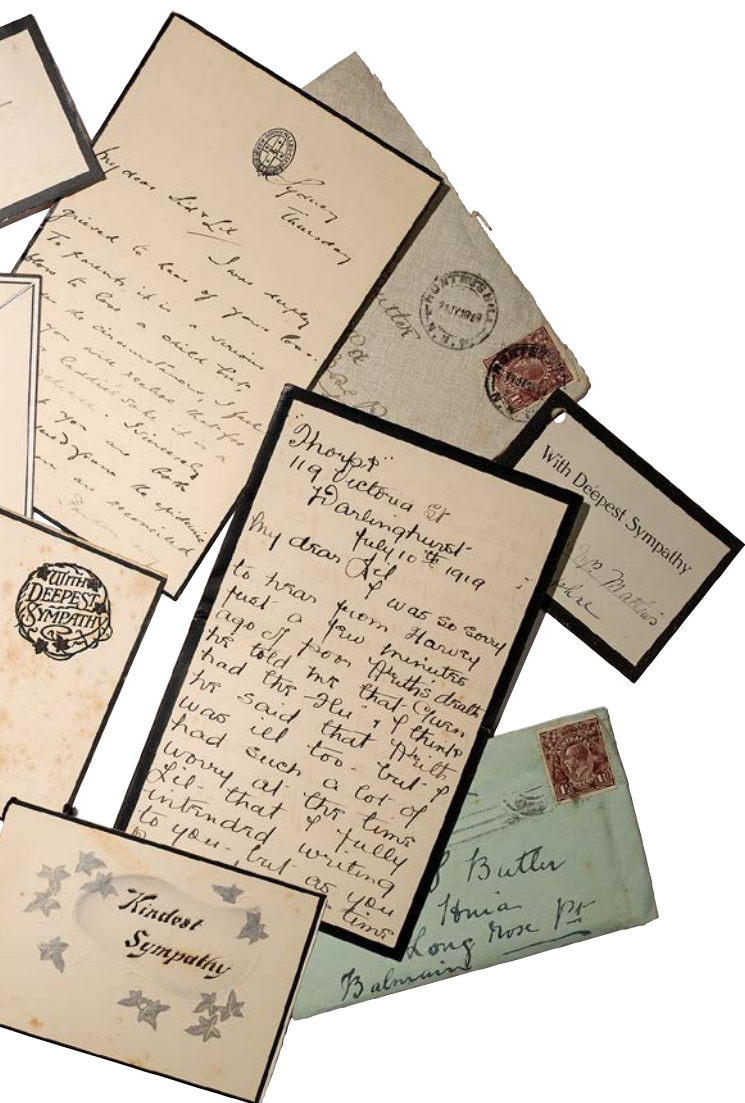 Sydney
Thursday
My dear Sid & Lil
I was deeply
grieved to hear of your loss.
To parents it is a serious
blow to lose a child but,
the circumstances, I feel
you will realise that for
it is a
Sincerely
you are both
the epidemic
are reconciled
HUNTERS HILL
With Deepest Sympathy
Mathews
"Thorpe"
119 Victoria St
Darlinghurst
July 10th 1919
My dear Lil
I was so sorry
to hear from Harvey
just a few minutes
ago of poor Keith's death
he told me that Gwen
had the Flu & I think
he said that Keith
was ill too - but I
had such a lot of
worry at the time
Lil - that I fully
intended writing
to you - but as you
time
WITH
DEEPEST
SYMPATHY
Kindest
Sympathy
Butler
Long Nose Pt
Balmain